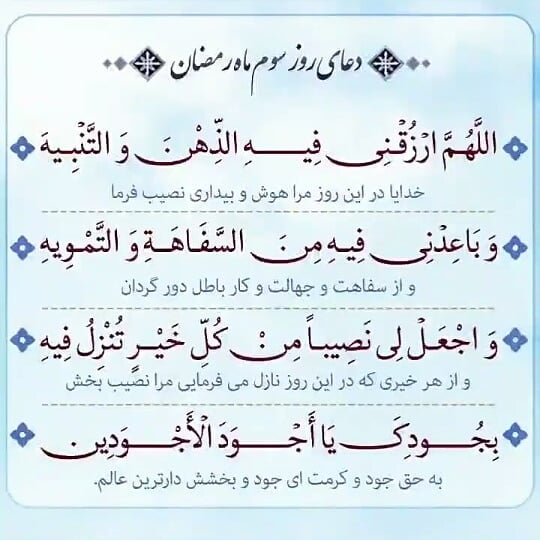 دعای روز سوم ماه رمضان
اللَّهُمَّ ارْزُقْنِی فِیهِ الذِّهْنَ وَ التَّنْبِیهَ
خدایا در این روز مرا هوش و بیداری نصیب فرما
وَ بَاعِدْنِی فِیهِ مِنَ السَّفَاهَةِ وَ التَّمْوِیهِ
و از سفاهت و جهالت و کار باطل دور گردان
وَ اجْعَلْ لِی نَصِیباً مِنْ کُلِّ خَیْرٍ تُنْزِلُ فِیهِ
و از هر خیری که در این روز نازل می فرمایی مرا نصیب بخش
بِجُودِکَ یَا أَجْوَدَ الْأَجْوَدِینَ
به حق جود و کرمت ای جود و بخشش دارترین عالم.